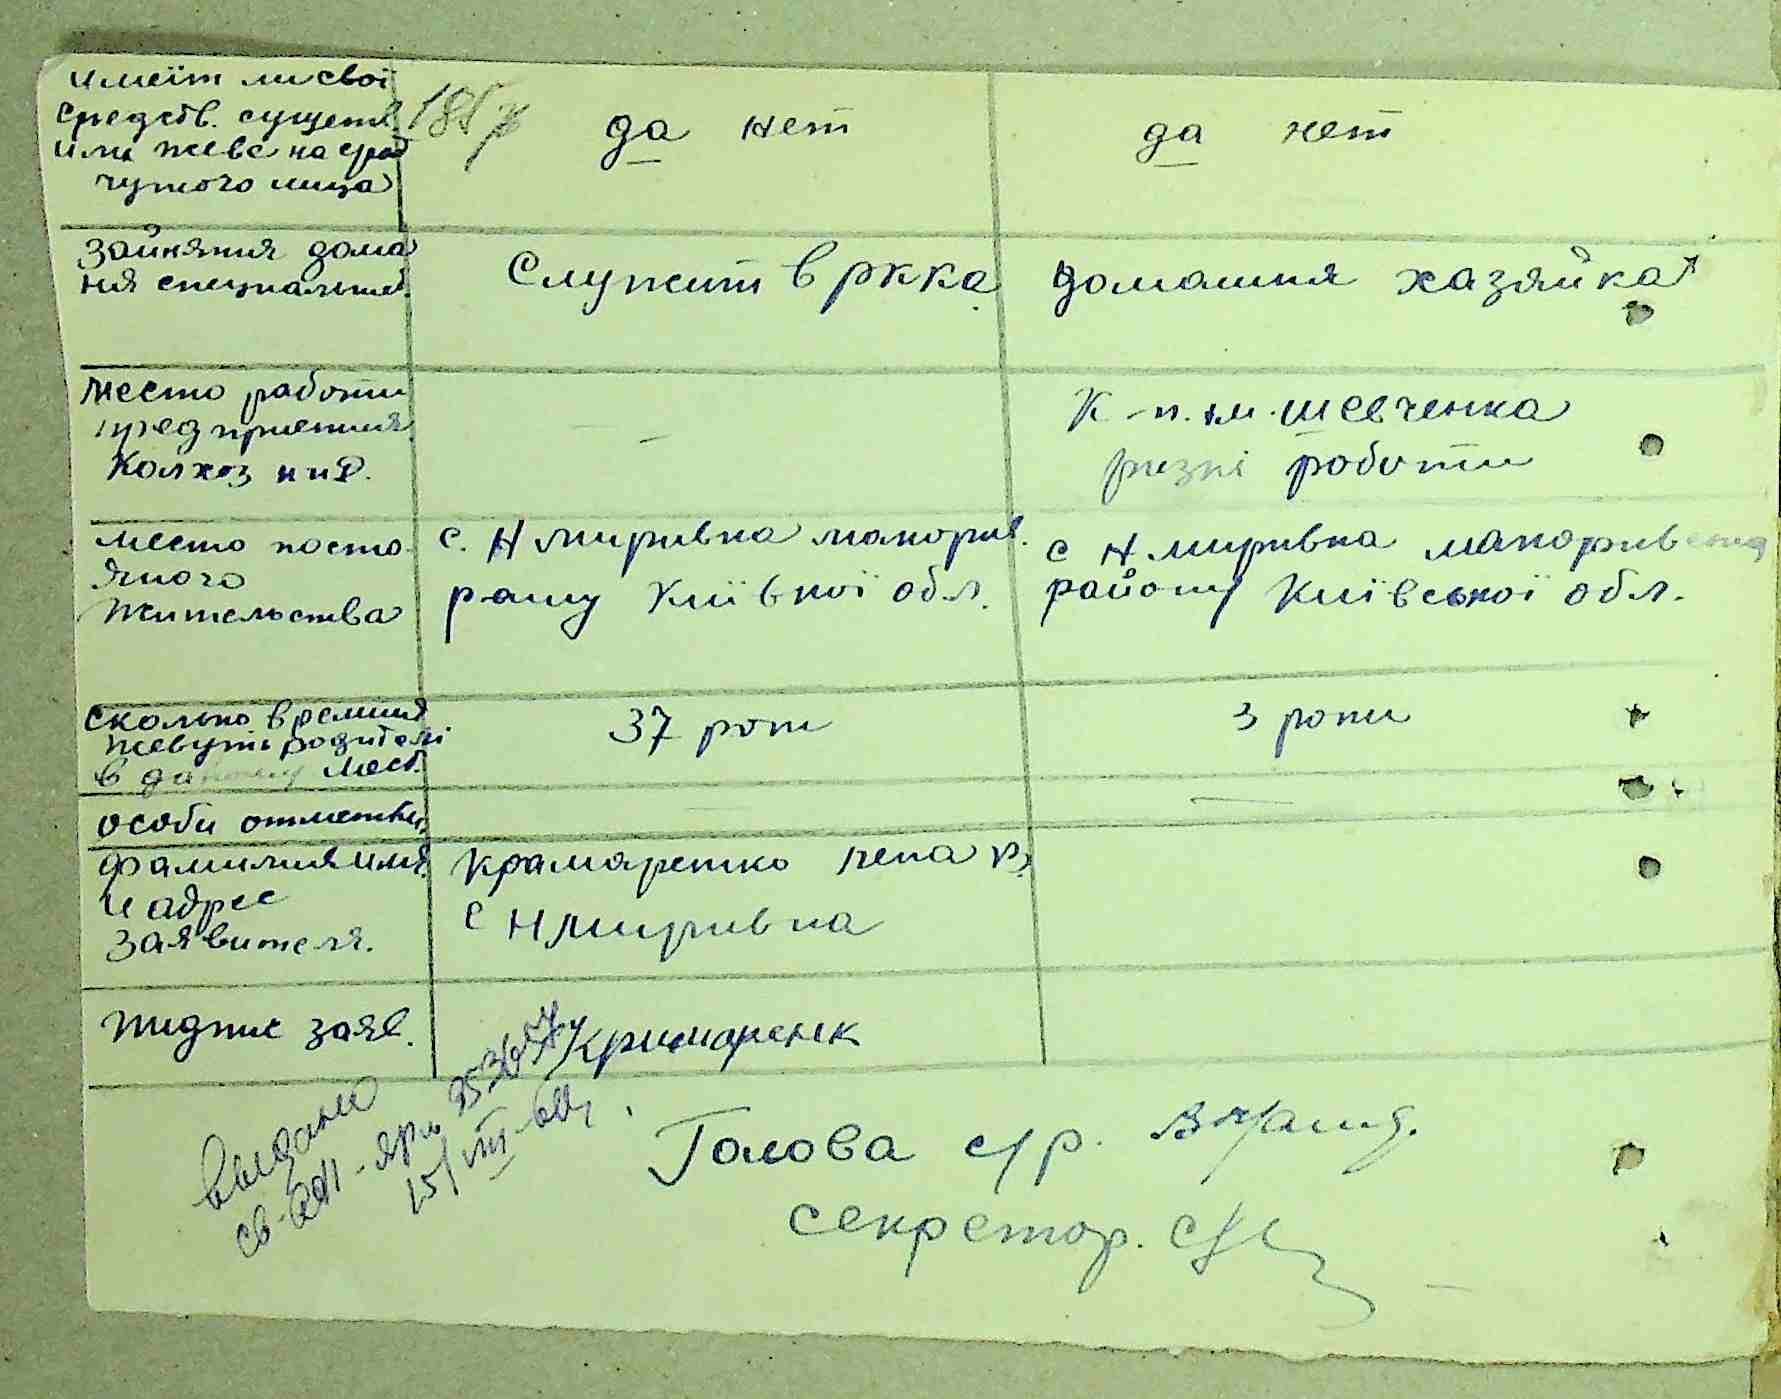 имеїт ли свої
средств. сущетв.
или жевє на сред
чужого лица
185р да нет да нет
Зайнятия дома
ня специальност.
Служит в РККА домашня хазяйка
место работи
предприетия
Колхоз и и д.
К-п. ім. Шевченка
ризні роботи
место посто-
яного
жительства
с. Нмиривка макорив. с Нмиривка макоривська
рашу Київкої обл. району Київської обл.
сколько времния
жевуть родителі
в данному мест.
37 роки 3 роки
особи отметки
фамилия имя
и адрес
заявителя.
Крамаренко
с Нмиривка
пидпис заяв.
Крамаренк
выдано
св-во
15/III-60
Голова с/р.
секретар.